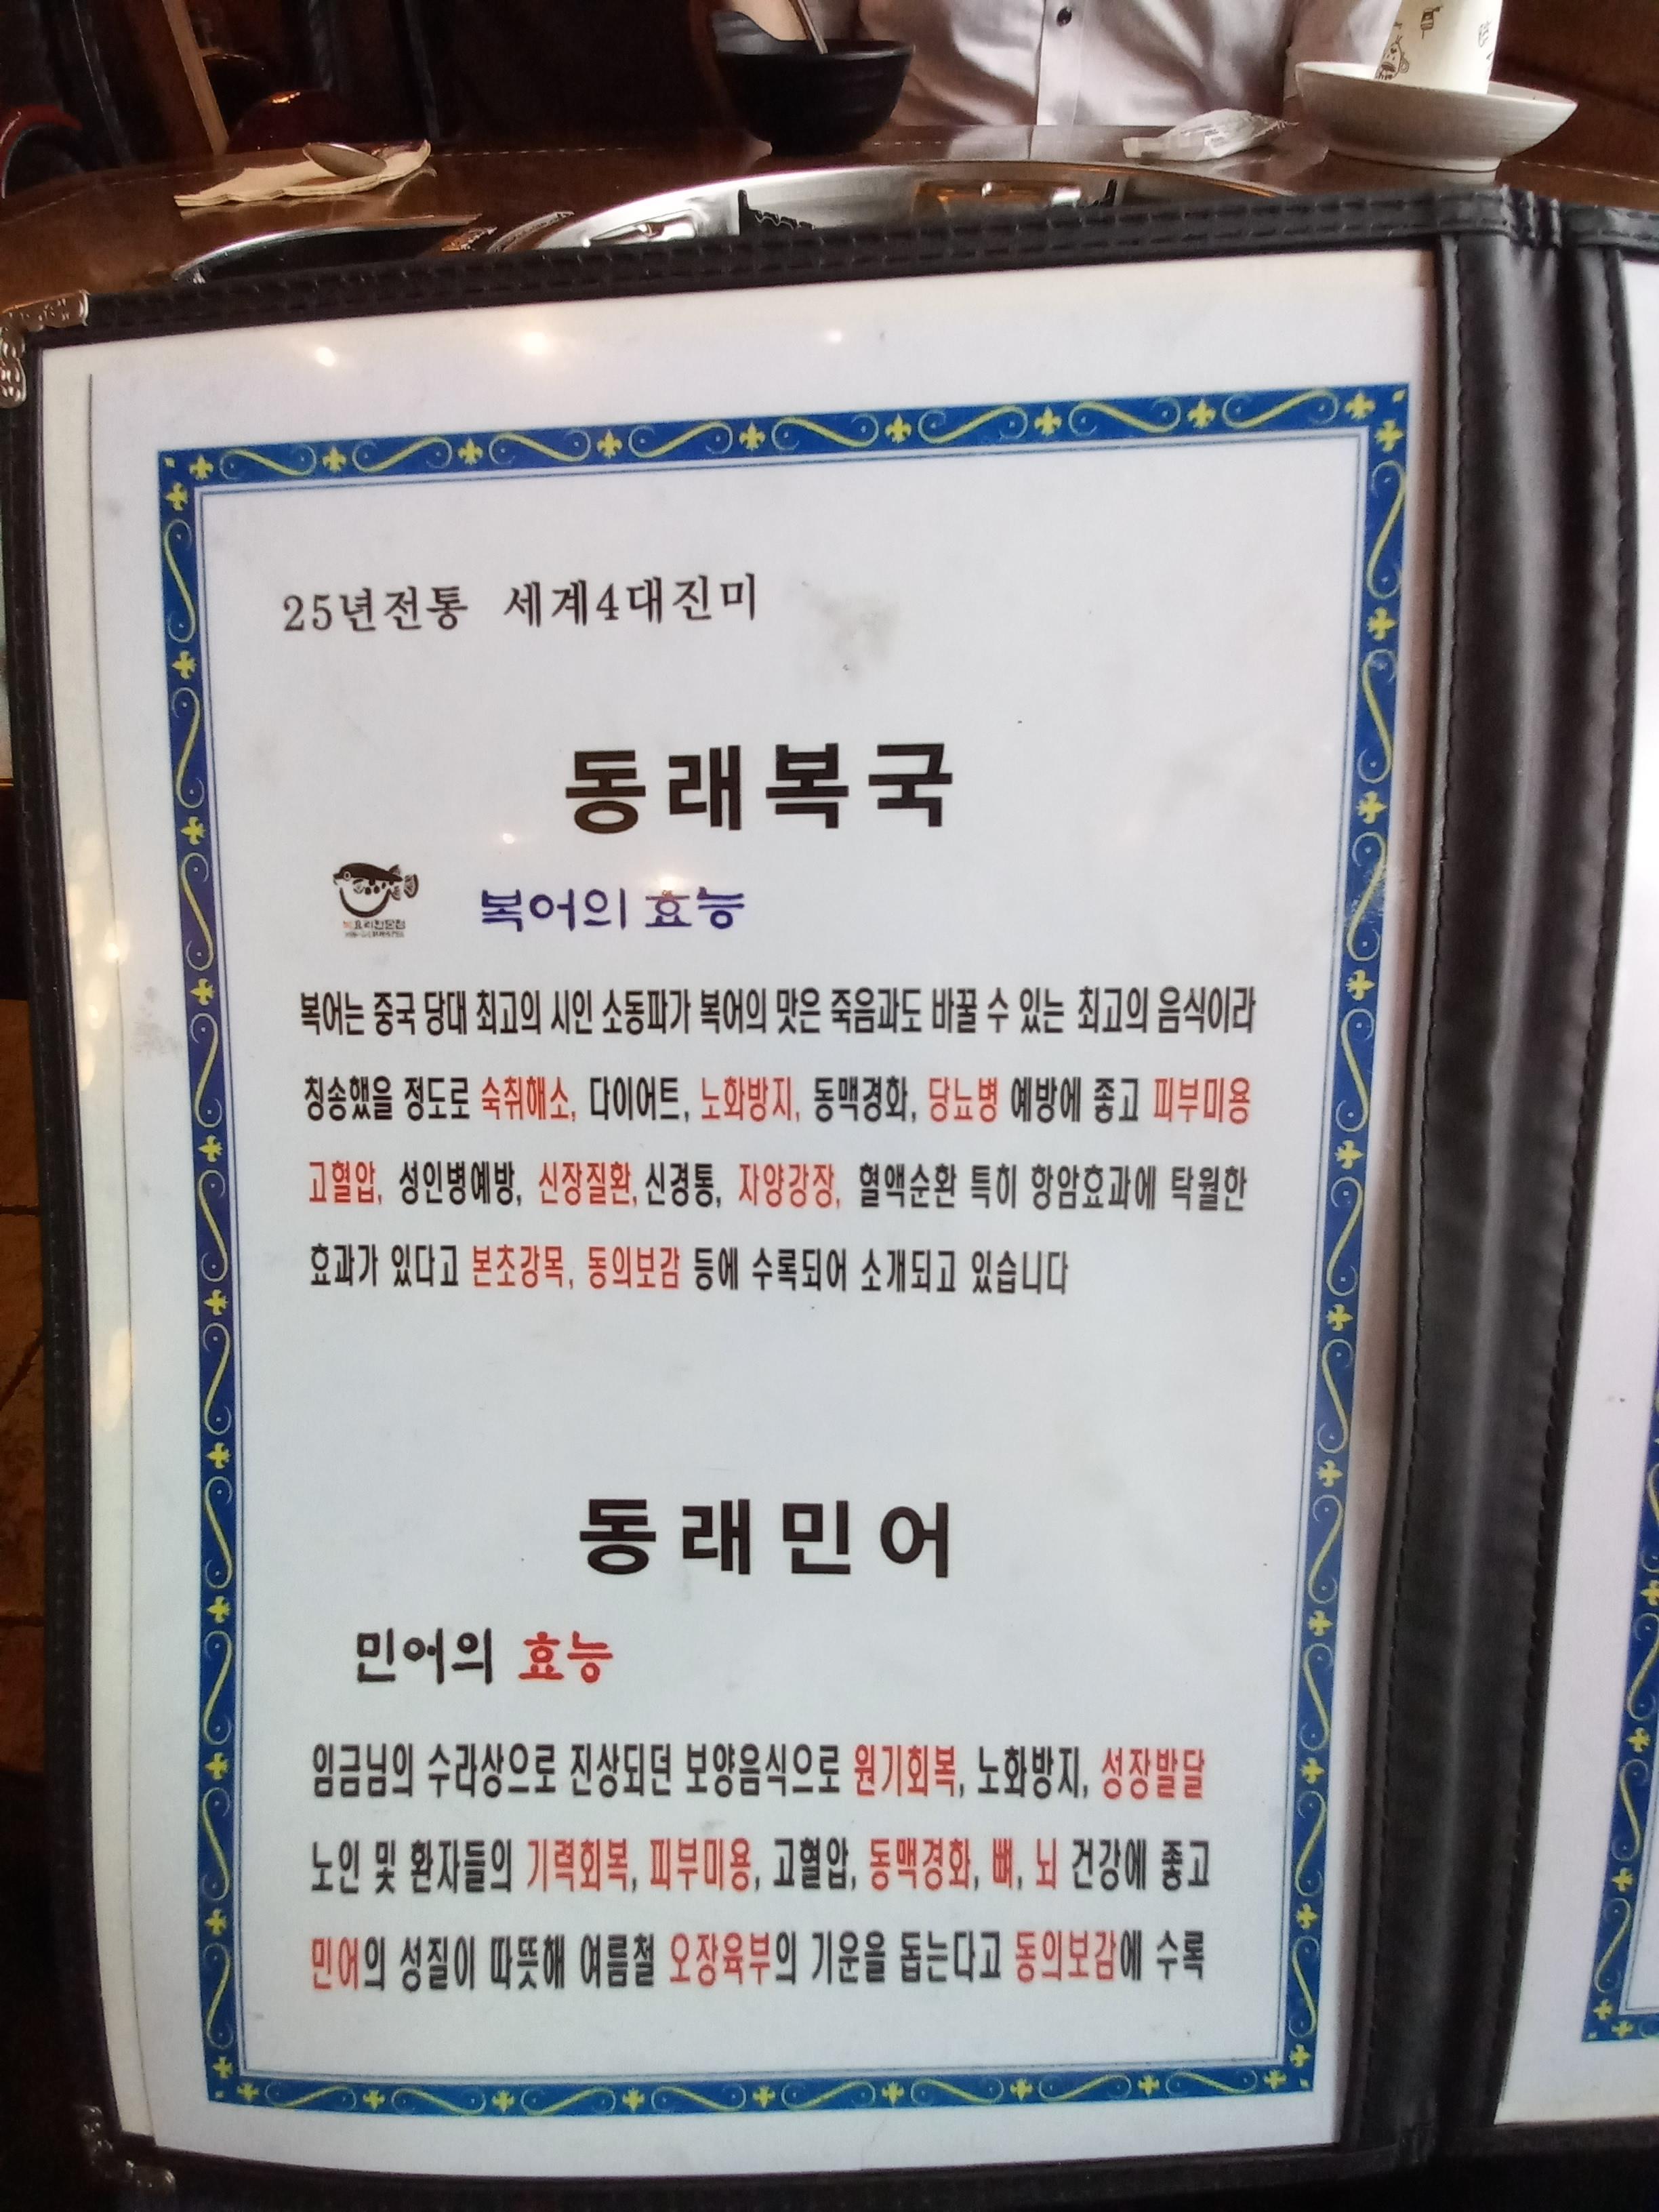 25년전통 세계4대진미
동래복국
복요리전문점
복어의 효능
복어는 중국 당대 최고의 시인 소동파가 복어의 맛은 죽음과도 바꿀 수 있는 최고의 음식이라
칭송했을 정도로 숙취해소, 다이어트, 노화방지, 동맥경화, 당뇨병 예방에 좋고 피부미용
고혈압, 성인병예방, 신장질환, 신경통, 자양강장, 혈액순환 특히 항암효과에 탁월한
효과가 있다고 본초강목, 동의보감 등에 수록되어 소개되고 있습니다
동래민어
민어의 효능
임금님의 수라상으로 진상되던 보양음식으로 원기회복, 노화방지, 성장발달
노인 및 환자들의 기력회복, 피부미용, 고혈압, 동맥경화, 뼈, 뇌 건강에 좋고
민어의 성질이 따뜻해 여름철 오장육부의 기운을 돕는다고 동의보감에 수록